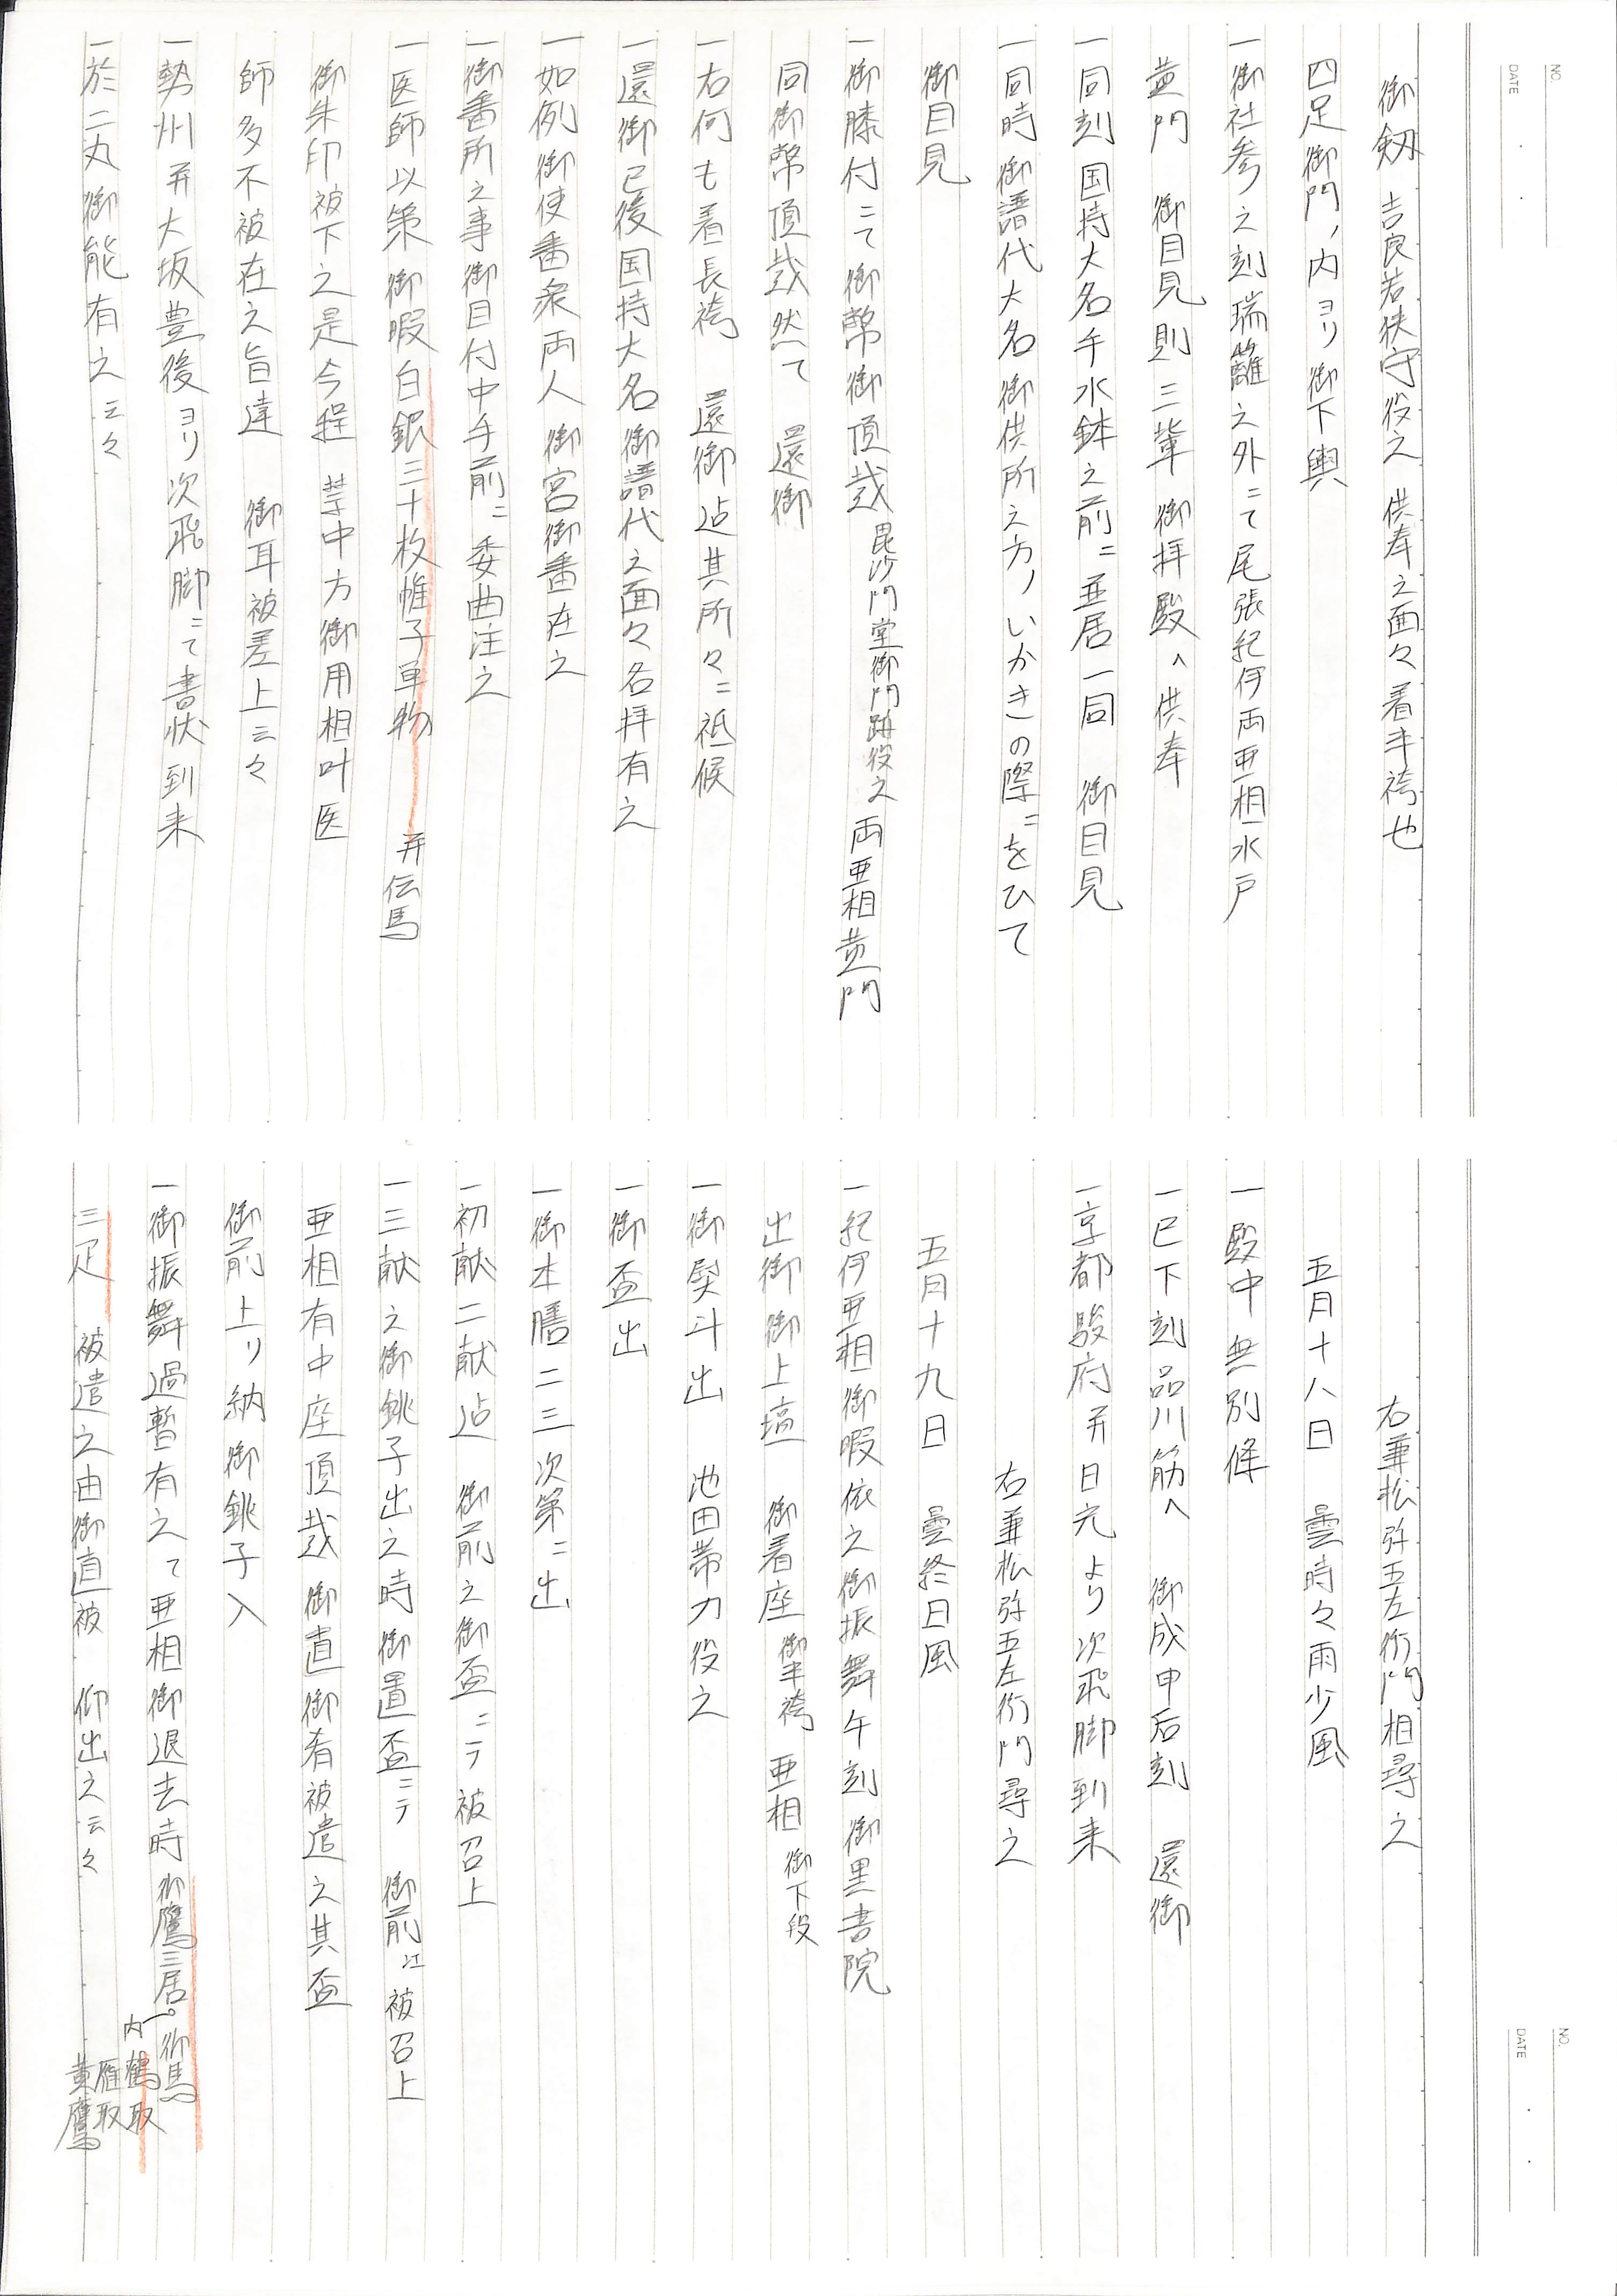 NO.
DATE
御剱 吉良若狭守役之 供奉之面々着半袴也
四足御門ノ内ヨリ御下輿
一御社参之刻瑞籬之外ニて尾張紀伊両亜相水戸
黄門 御目見則三輩御拝殿ヘ供奉
一同刻国持大名手水鉢之前ニ並居一同 御目見
一同時御譜代大名御供所之方ノいかきの際ニをひて
御目見
一御膝付ニて御幣御頂戴 毘沙門堂御門跡役之 両亜相黄門
同御幣頂戴然て 還御
一右何も着長袴 還御迠其所々ニ祗候
一還御已後国持大名御譜代之面々各拝有之
一如例御使番衆両人御宮御番在之
一御番所之事御目付中手前ニ委曲注之
一医師以策御暇白銀三十枚帷子単物 并伝馬
御朱印被下之是今程 禁中方御用相叶医
師多不被在之旨達 御耳被差上云々
一勢州并大坂豊後ヨリ次飛脚ニて書状到来
一於二丸御能有之云々
NO.
DATE
右兼松弥五左衛門相尋之
五月十八日 曇時々雨少風
一殿中無別条
一巳下刻品川筋ヘ 御成申后刻 還御
一京都駿府并日光より次飛脚到来
右兼松弥五左衛門尋之
五月十九日 曇終日風
一紀伊亜相御暇依之御振舞午刻御黒書院
出御御上壇 御着座 御半袴 亜相 御下段
一御熨斗出 池田帯刀役之
一御盃出
一御本膳二三次第ニ出
一初献二献迠 御前之御盃ニテ被召上
一三献之御銚子出之時御置盃ニテ 御前江被召上
亜相有中座頂戴御直御肴被遣之其盃
御前上リ納御銚子入
一御振舞過暫有之て亜相御退去時御鷹三居 御馬
内 鶴取 雁取 黄鷹
三疋 被遣之由御直被 仰出之云々